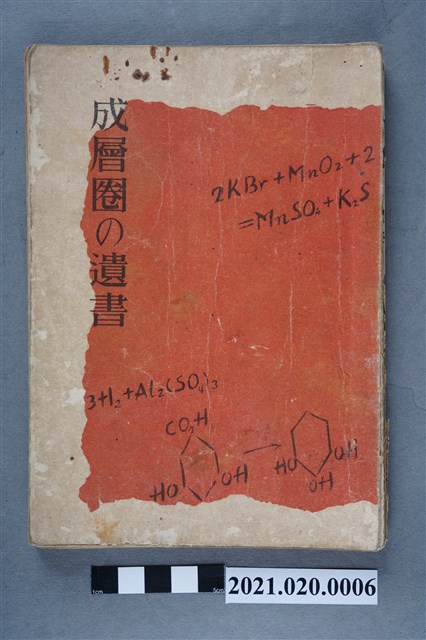 成層圏の遺書
2KBr+MnO2+2
=MnSO4+K2S
3H2+Al2(SO4)3
CO2H
HO
OH
HO
OH
OH
1cm
5cm
2021.020.0006